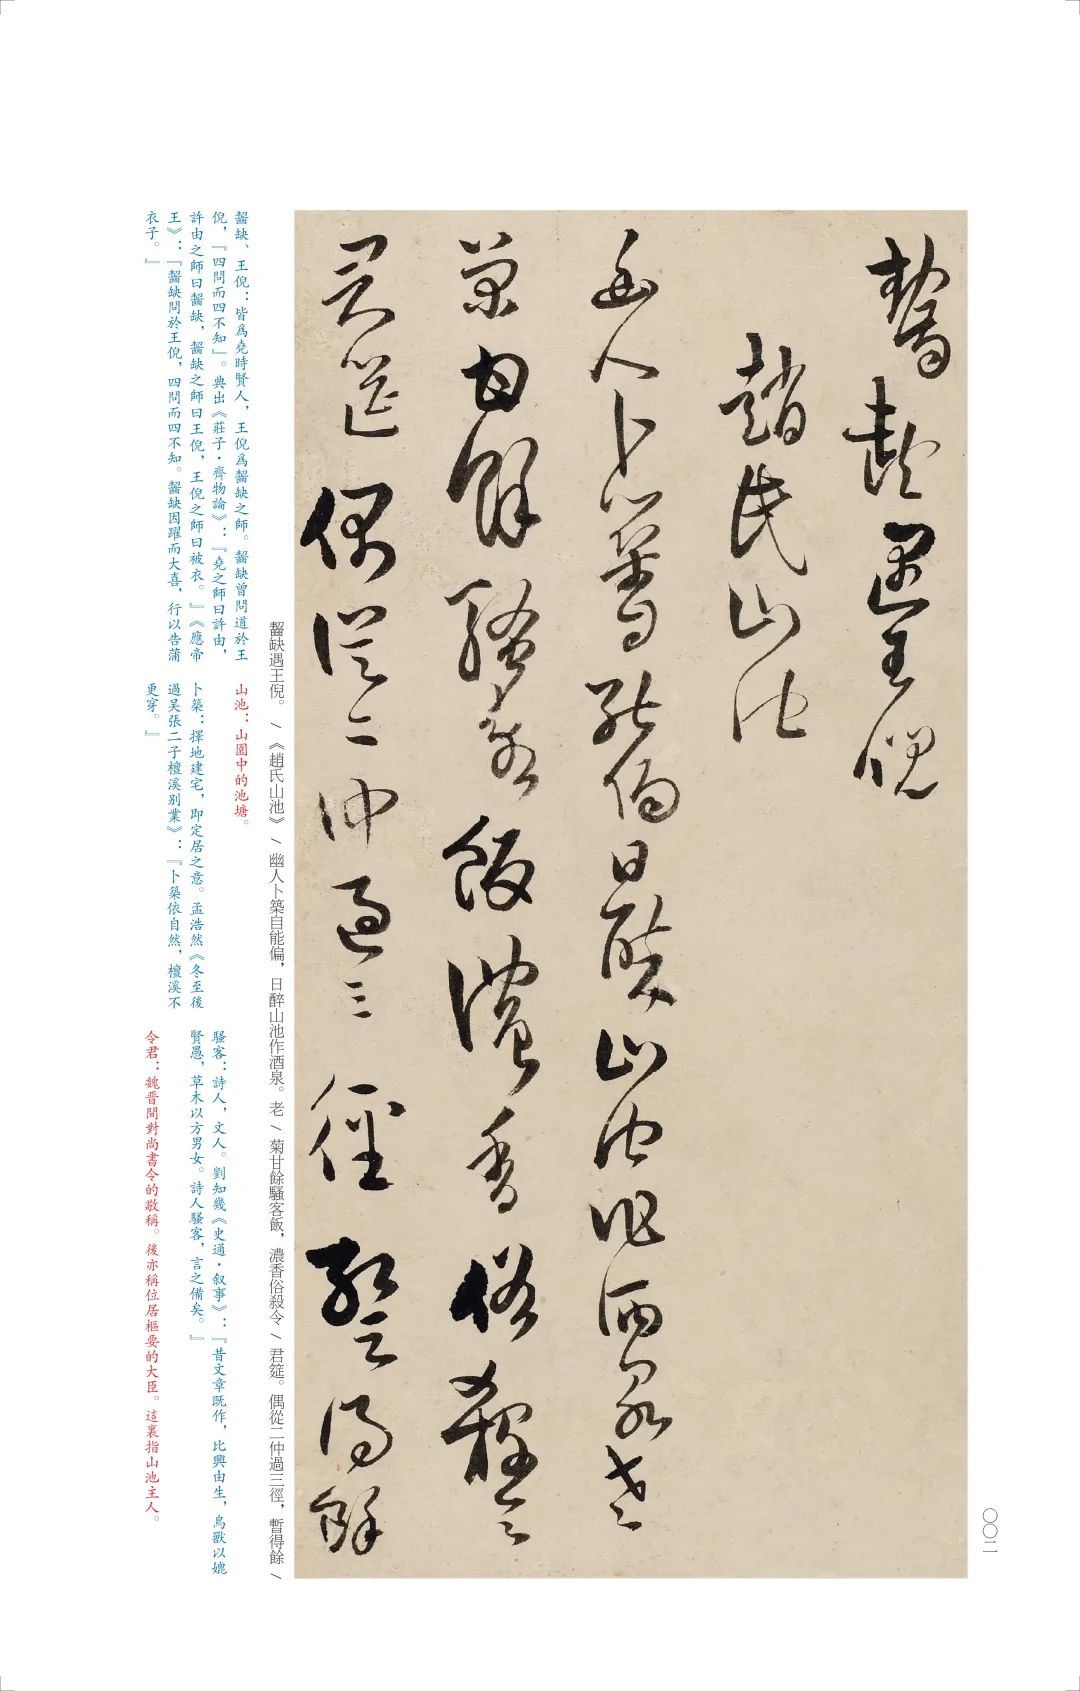 齧缺遇王倪
趙氏山池
幽人卜築自能偏日醉山池作酒泉老
菊甘餘騷客飯濃香俗殺令
君筵偶從二仲過三徑暫得餘
齧缺遇王倪。/《趙氏山池》/幽人卜築自能偏，日醉山池作酒泉。老/菊甘餘騷客飯，濃香俗殺令/君筵。偶從二仲過三徑，暫得餘/
齧缺、王倪：皆爲堯時賢人，王倪爲齧缺之師。齧缺曾問道於王
倪，『四問而四不知』。典出《莊子·齊物論》：『堯之師曰許由，
許由之師曰齧缺，齧缺之師曰王倪，王倪之師曰被衣。』《應帝
王》：『齧缺問於王倪，四問而四不知。齧缺因躍而大喜，行以告蒲
衣子。』
山池：山園中的池塘。
卜築：擇地建宅，即定居之意。孟浩然《冬至後
過吴張二子檀溪别業》：『卜築依自然，檀溪不
更穿。』
騷客：詩人，文人。劉知幾《史通·叙事》：『昔文章既作，比興由生，鳥獸以媲
賢愚，草木以方男女。詩人騷客，言之備矣。』
令君：魏晋間對尚書令的敬稱。後亦稱位居樞要的大臣。這裏指山池主人。
〇〇二